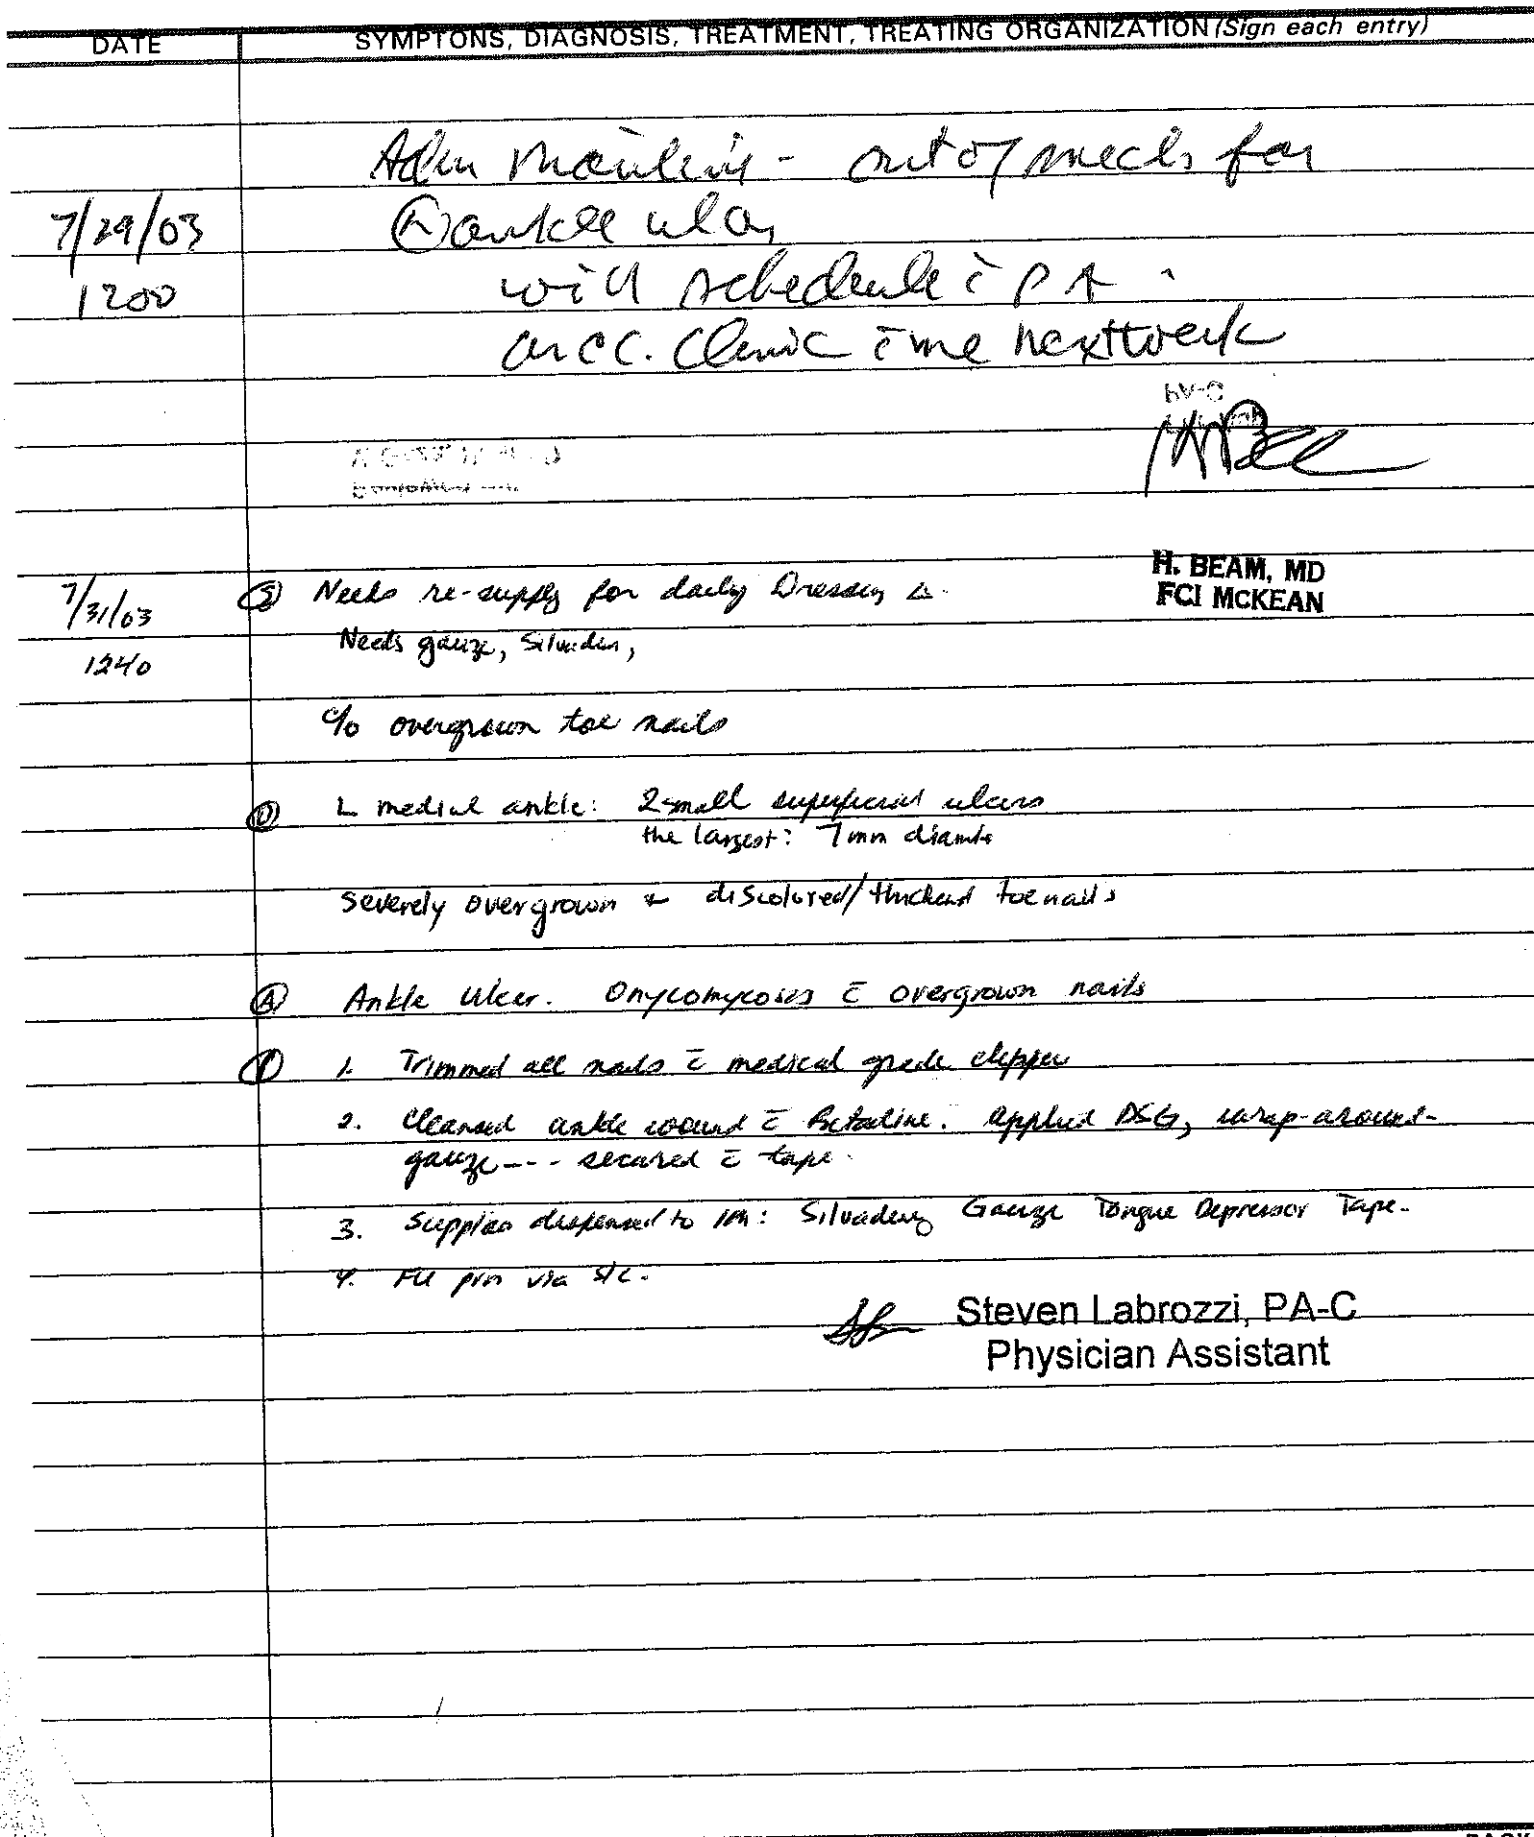 DATE SYMPTONS, DIAGNOSIS, TREATMENT, TREATING ORGANIZATION (Sign each entry)
Adm - out of meds for
7/29/03 ankle
1200 will schedule c̄ PA
or CC. Clinic c̄ me next week
H. BEAM, MD
FCI MCKEAN
7/31/03 Ⓢ Needs re-supply for daily Dressing Δ.
1240 Needs gauze, Silvaden,
c/o overgrown toe nails
Ⓞ L medial ankle: 2 small superficial ulcers
the largest: 7mm
Severely overgrown + discolored/thickend toenails
Ⓐ Ankle Ulcer. Onycomycosis c̄ overgrown nails
Ⓟ 1. Trimmed all nails c̄ medical grade clipper
2. Cleansed ankle wound c̄ Betadine. Applied DSG, wrap-around-
gauze --- secured c̄ tape.
3. Supplies dispensed to IM: Silvadeng Gauze Tongue Depressor Tape.
4. FU prn via s/c.
Steven Labrozzi, PA-C
Physician Assistant